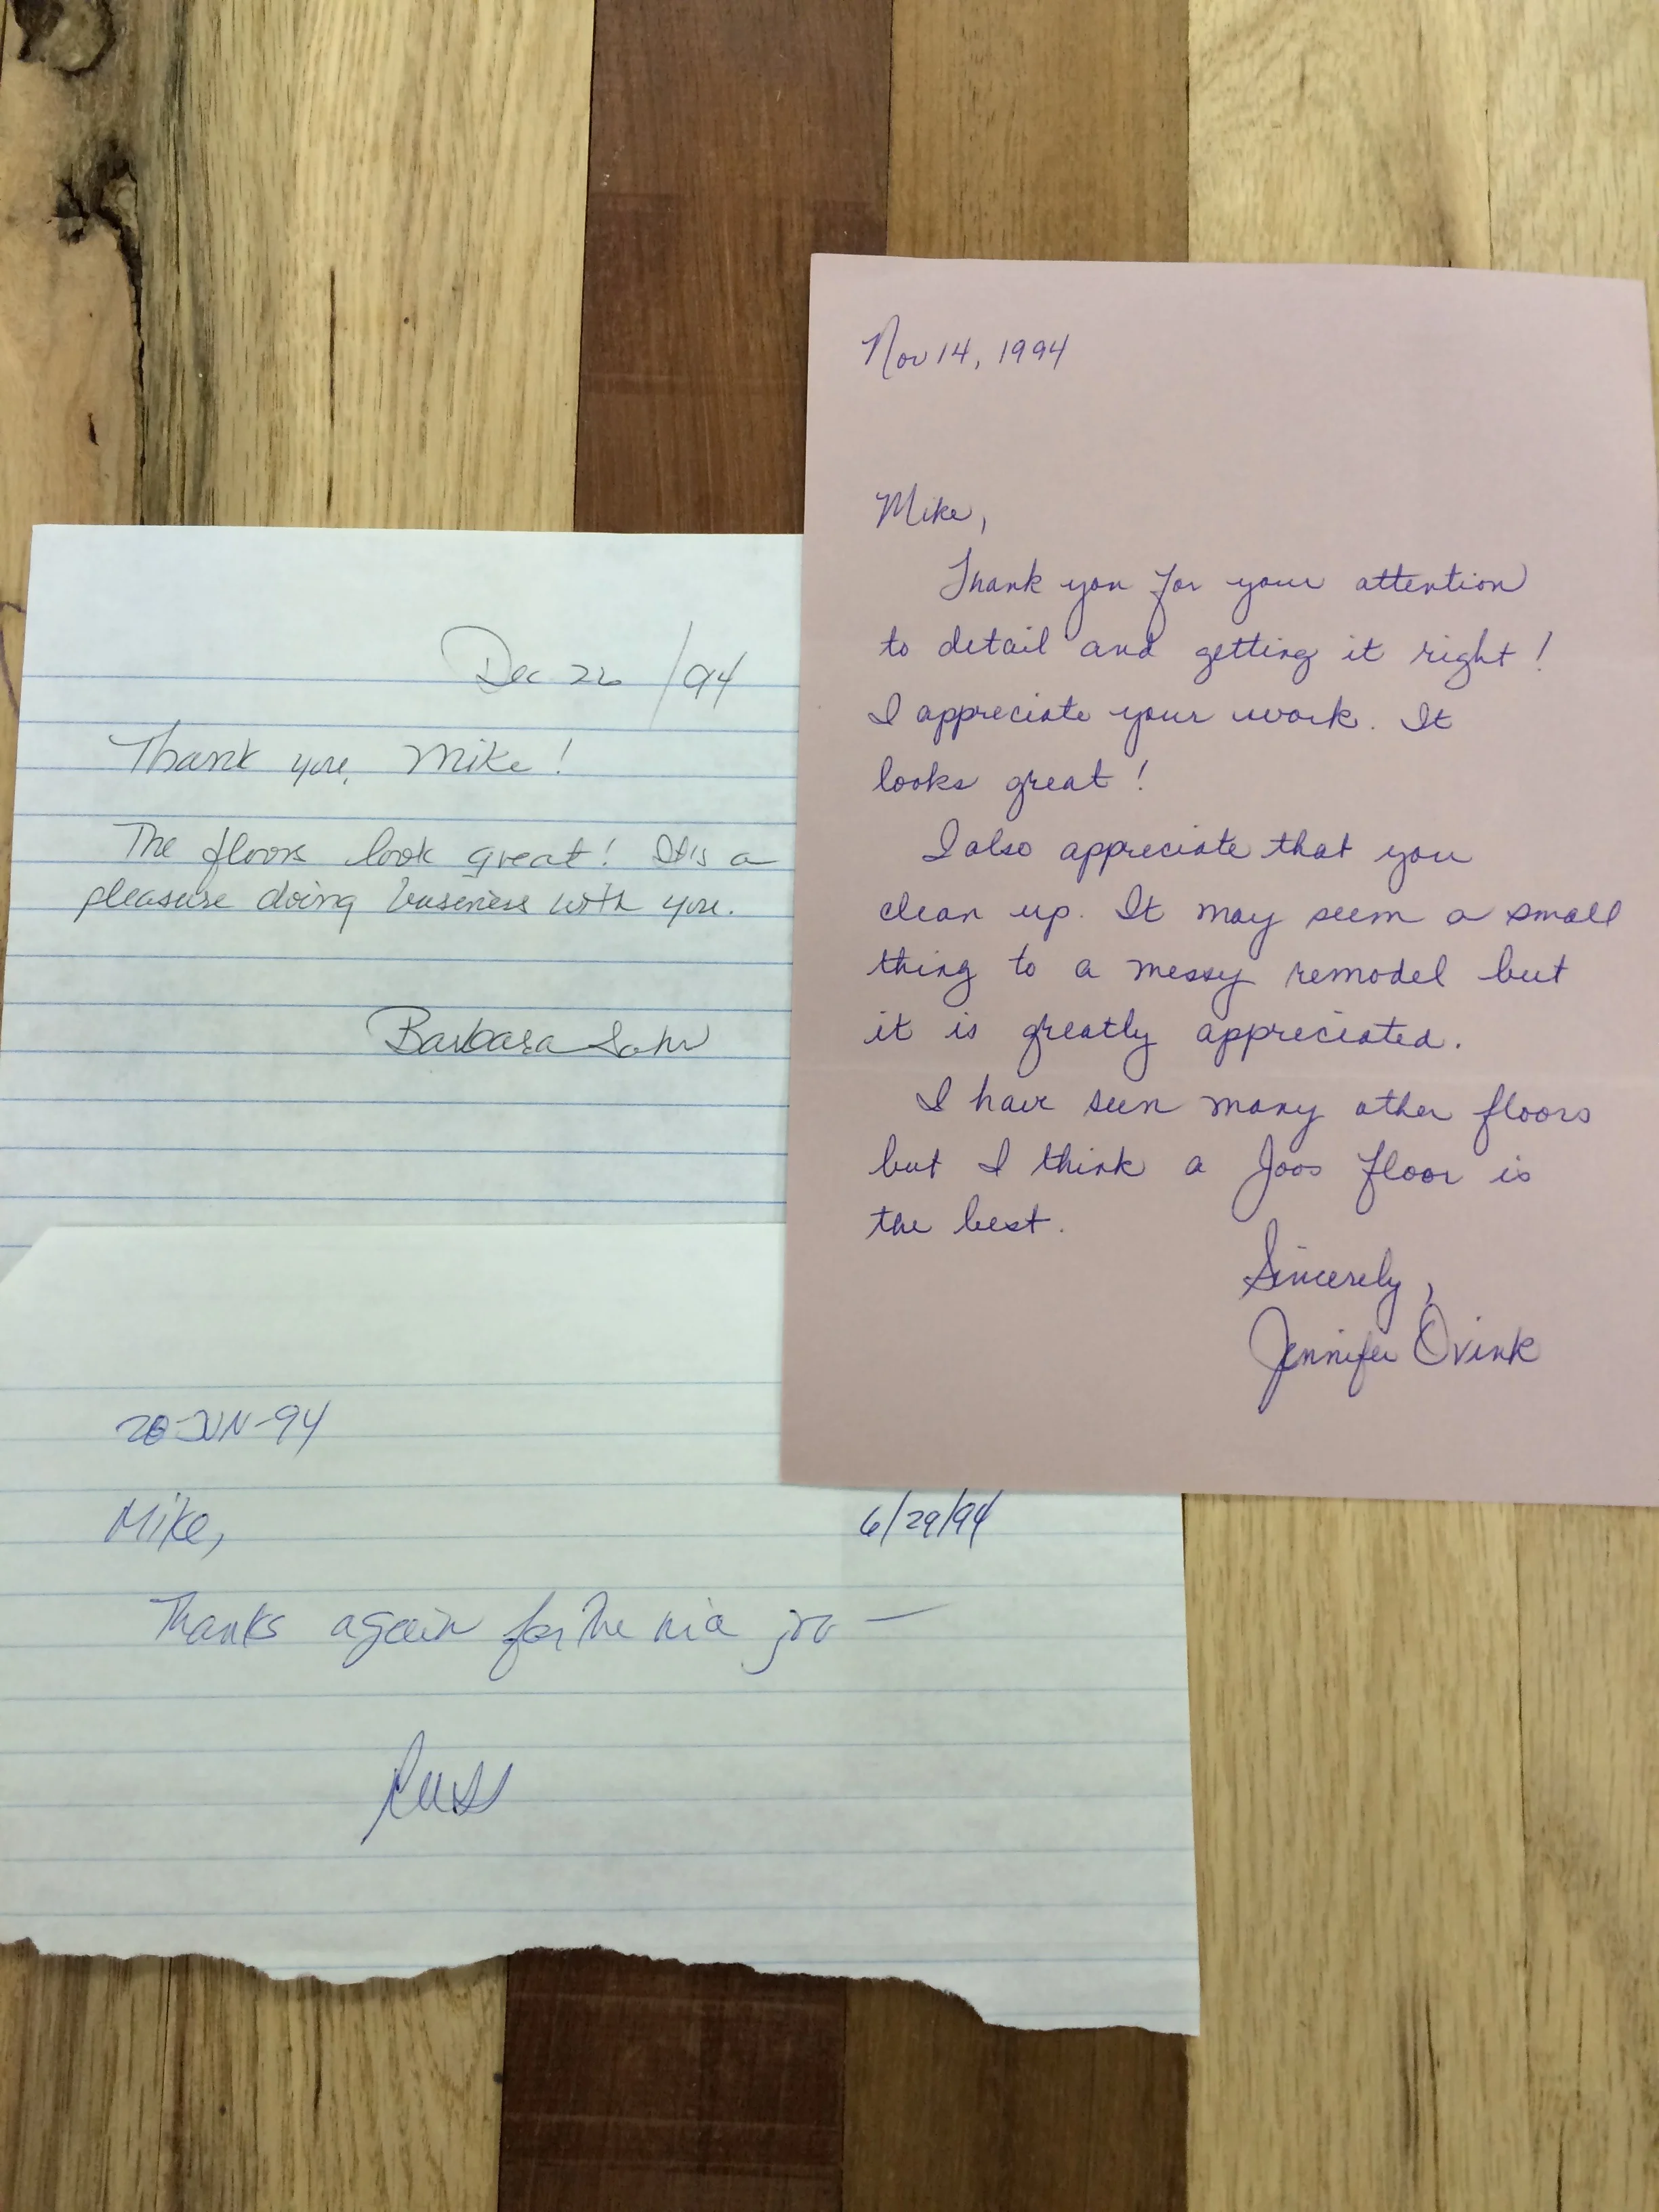 Dec 22 /94
Thank you, Mike!
The floors look great! It's a
pleasure doing business with you.
Barbara
Nov 14, 1994
Mike,
Thank you for your attention
to detail and getting it right!
I appreciate your work. It
looks great!
I also appreciate that you
clean up. It may seem a small
thing to a messy remodel but
it is greatly appreciated.
I have seen many other floors
but I think a Joos floor is
the best.
Sincerely,
Jennifer Ovink
28-JUN-94
Mike,
6/29/94
Thanks again for the nice job —
Russ